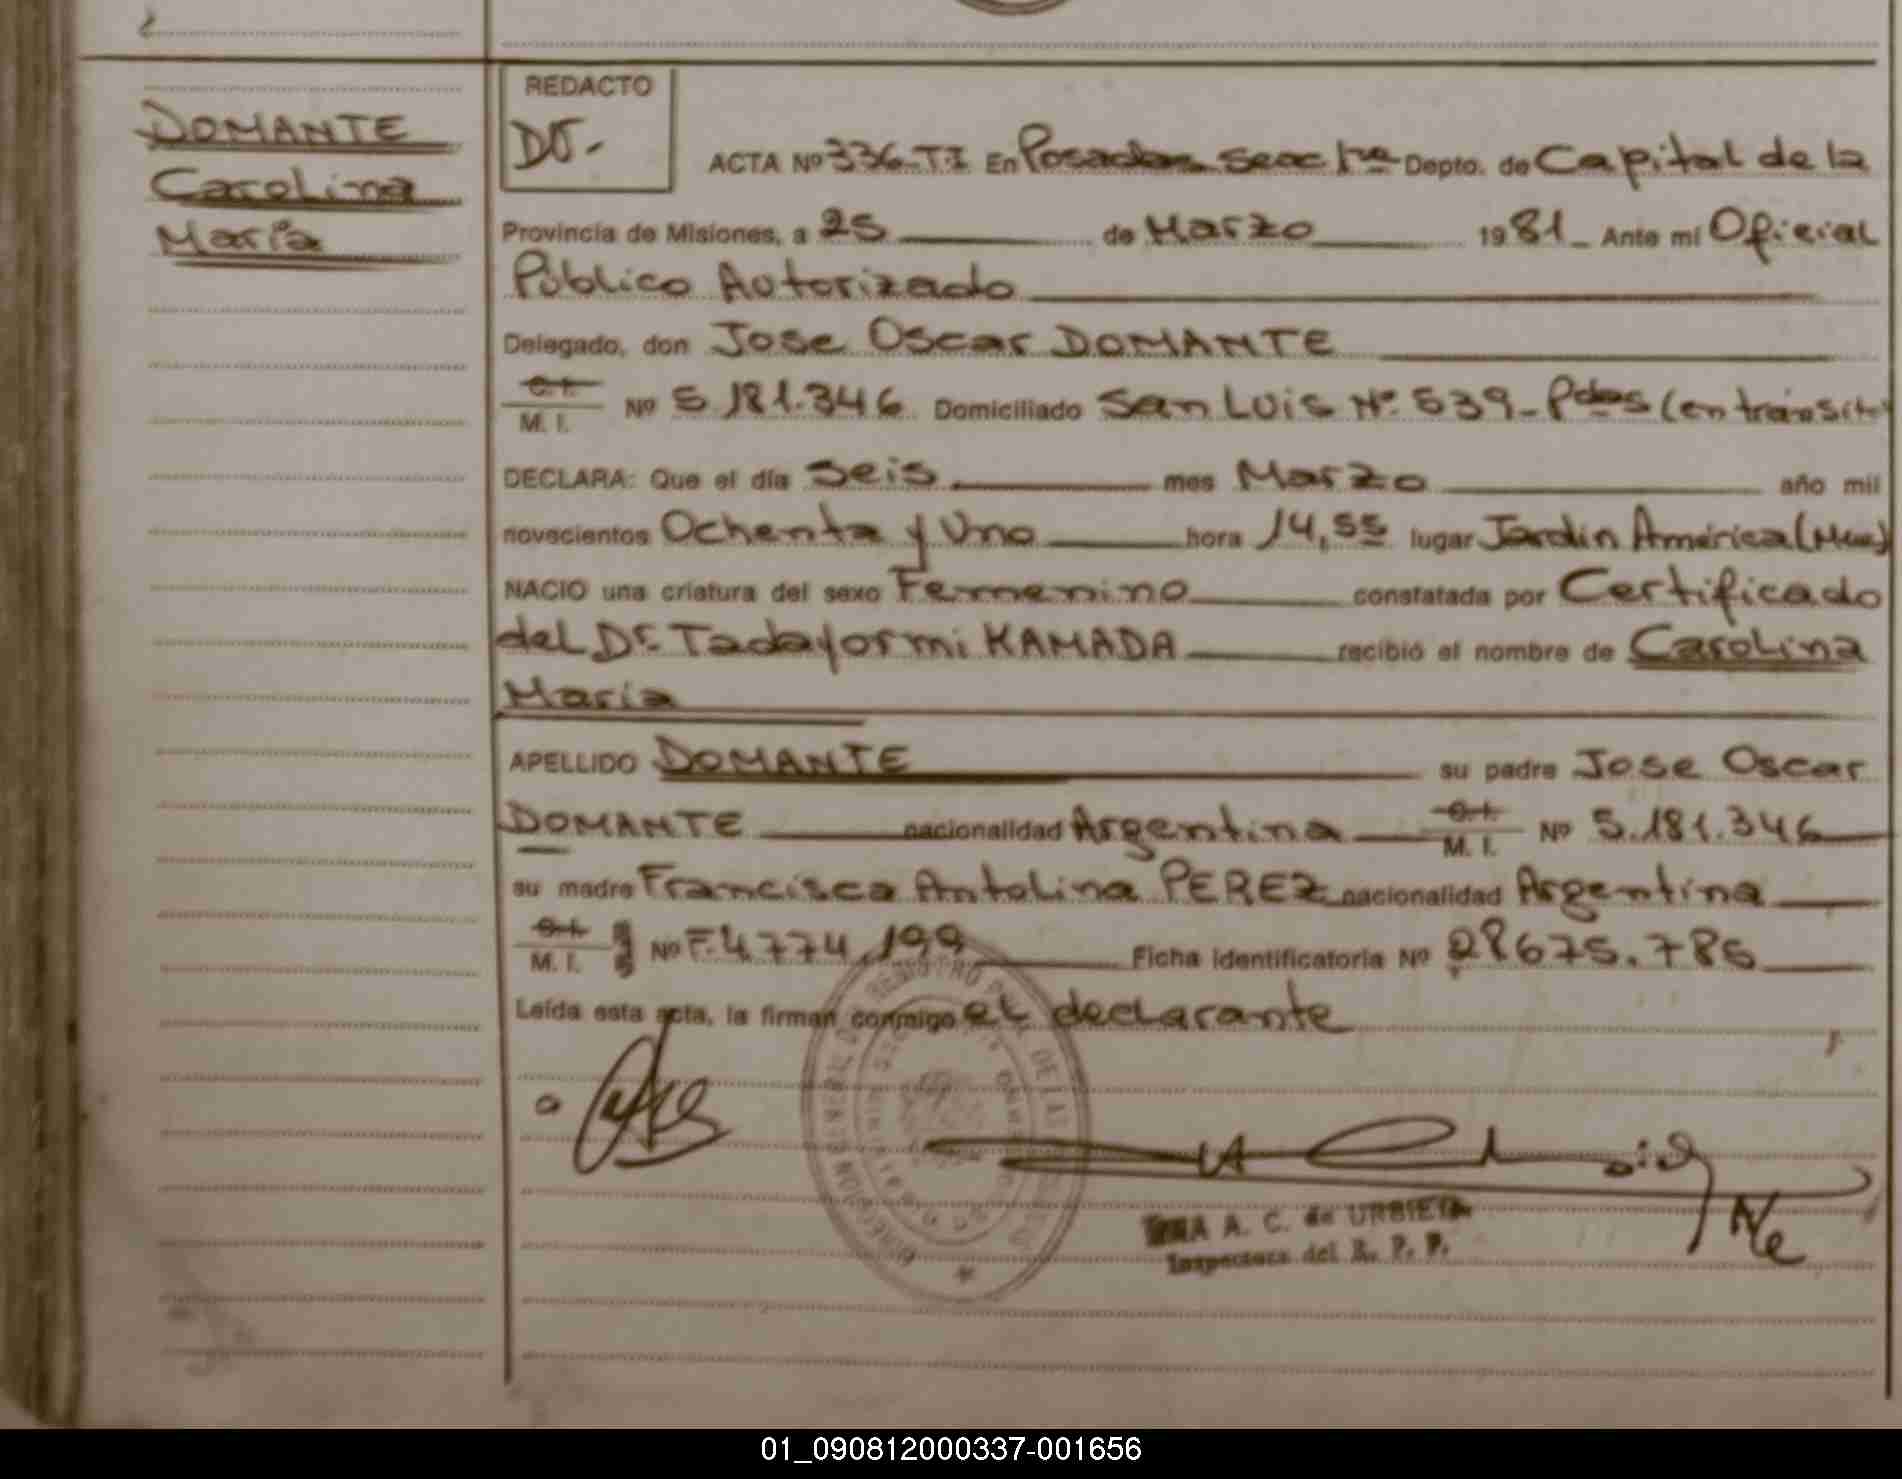 DOMANTE
Carolina
María
REDACTO
DJ.-
ACTA Nº 336-TI En Posadas secc 1ra Depto. de Capital de la
Provincia de Misiones, a 25 de Marzo 1981 Ante mí Oficial
Público Autorizado
Delegado, don Jose Oscar DOMANTE
C.I.
M. I. Nº 5.181.346 Domiciliado San Luis Nº 539- Pdas (en tránsito
DECLARA: Que el día Seis mes Marzo año mil
novecientos Ochenta y Uno hora 14,55 lugar Jardín América (Mnes)
NACIO una criatura del sexo Femenino constatada por Certificado
del Dr. Tadayormi KAMADA recibió el nombre de Carolina
María
APELLIDO DOMANTE su padre Jose Oscar
DOMANTE nacionalidad Argentina C.I. M. I. Nº 5.181.346
su madre Francisca Antolina PEREZ nacionalidad Argentina
C.I. M. I. Nº F.4.774.199 Ficha identificatoria Nº 28675.785
Leída esta acta, la firman conmigo el declarante
DIRECCION GENERAL DE REGISTRO PCIAL DE LAS
A. C. de URBIETA
Inspectora del R. P. P.
01_090812000337-001656